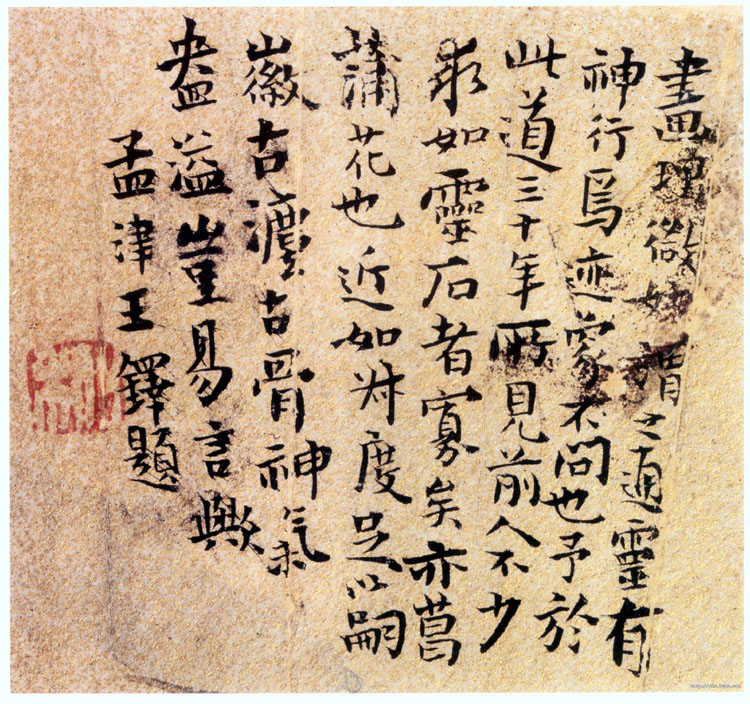 畫理微妙謂之通靈有
神行焉迹象不問也予於
此道三十年所見前人不少
求如靈石者寡矣亦菖
蒲花也近如度足以嗣
徽古灋古骨神氣
盎溢豈易言歟
孟津王鐸題